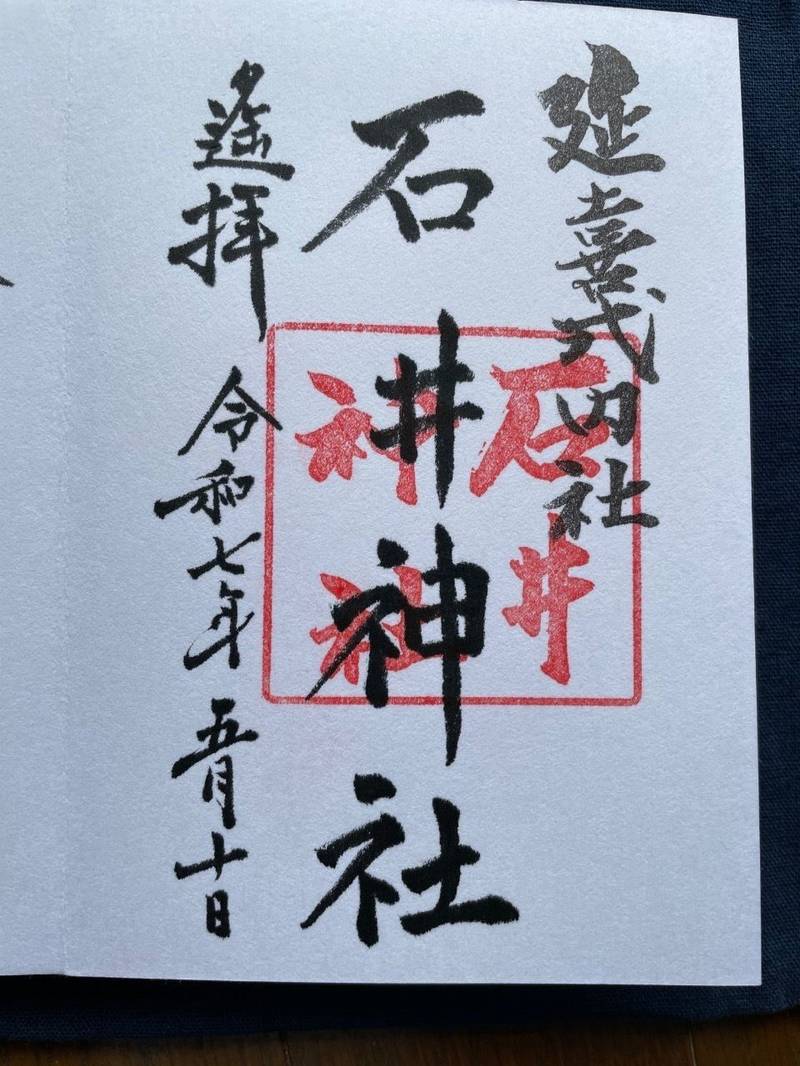 延喜式内社
石井神社
石井
神社
遥拝
令和七年五月十日